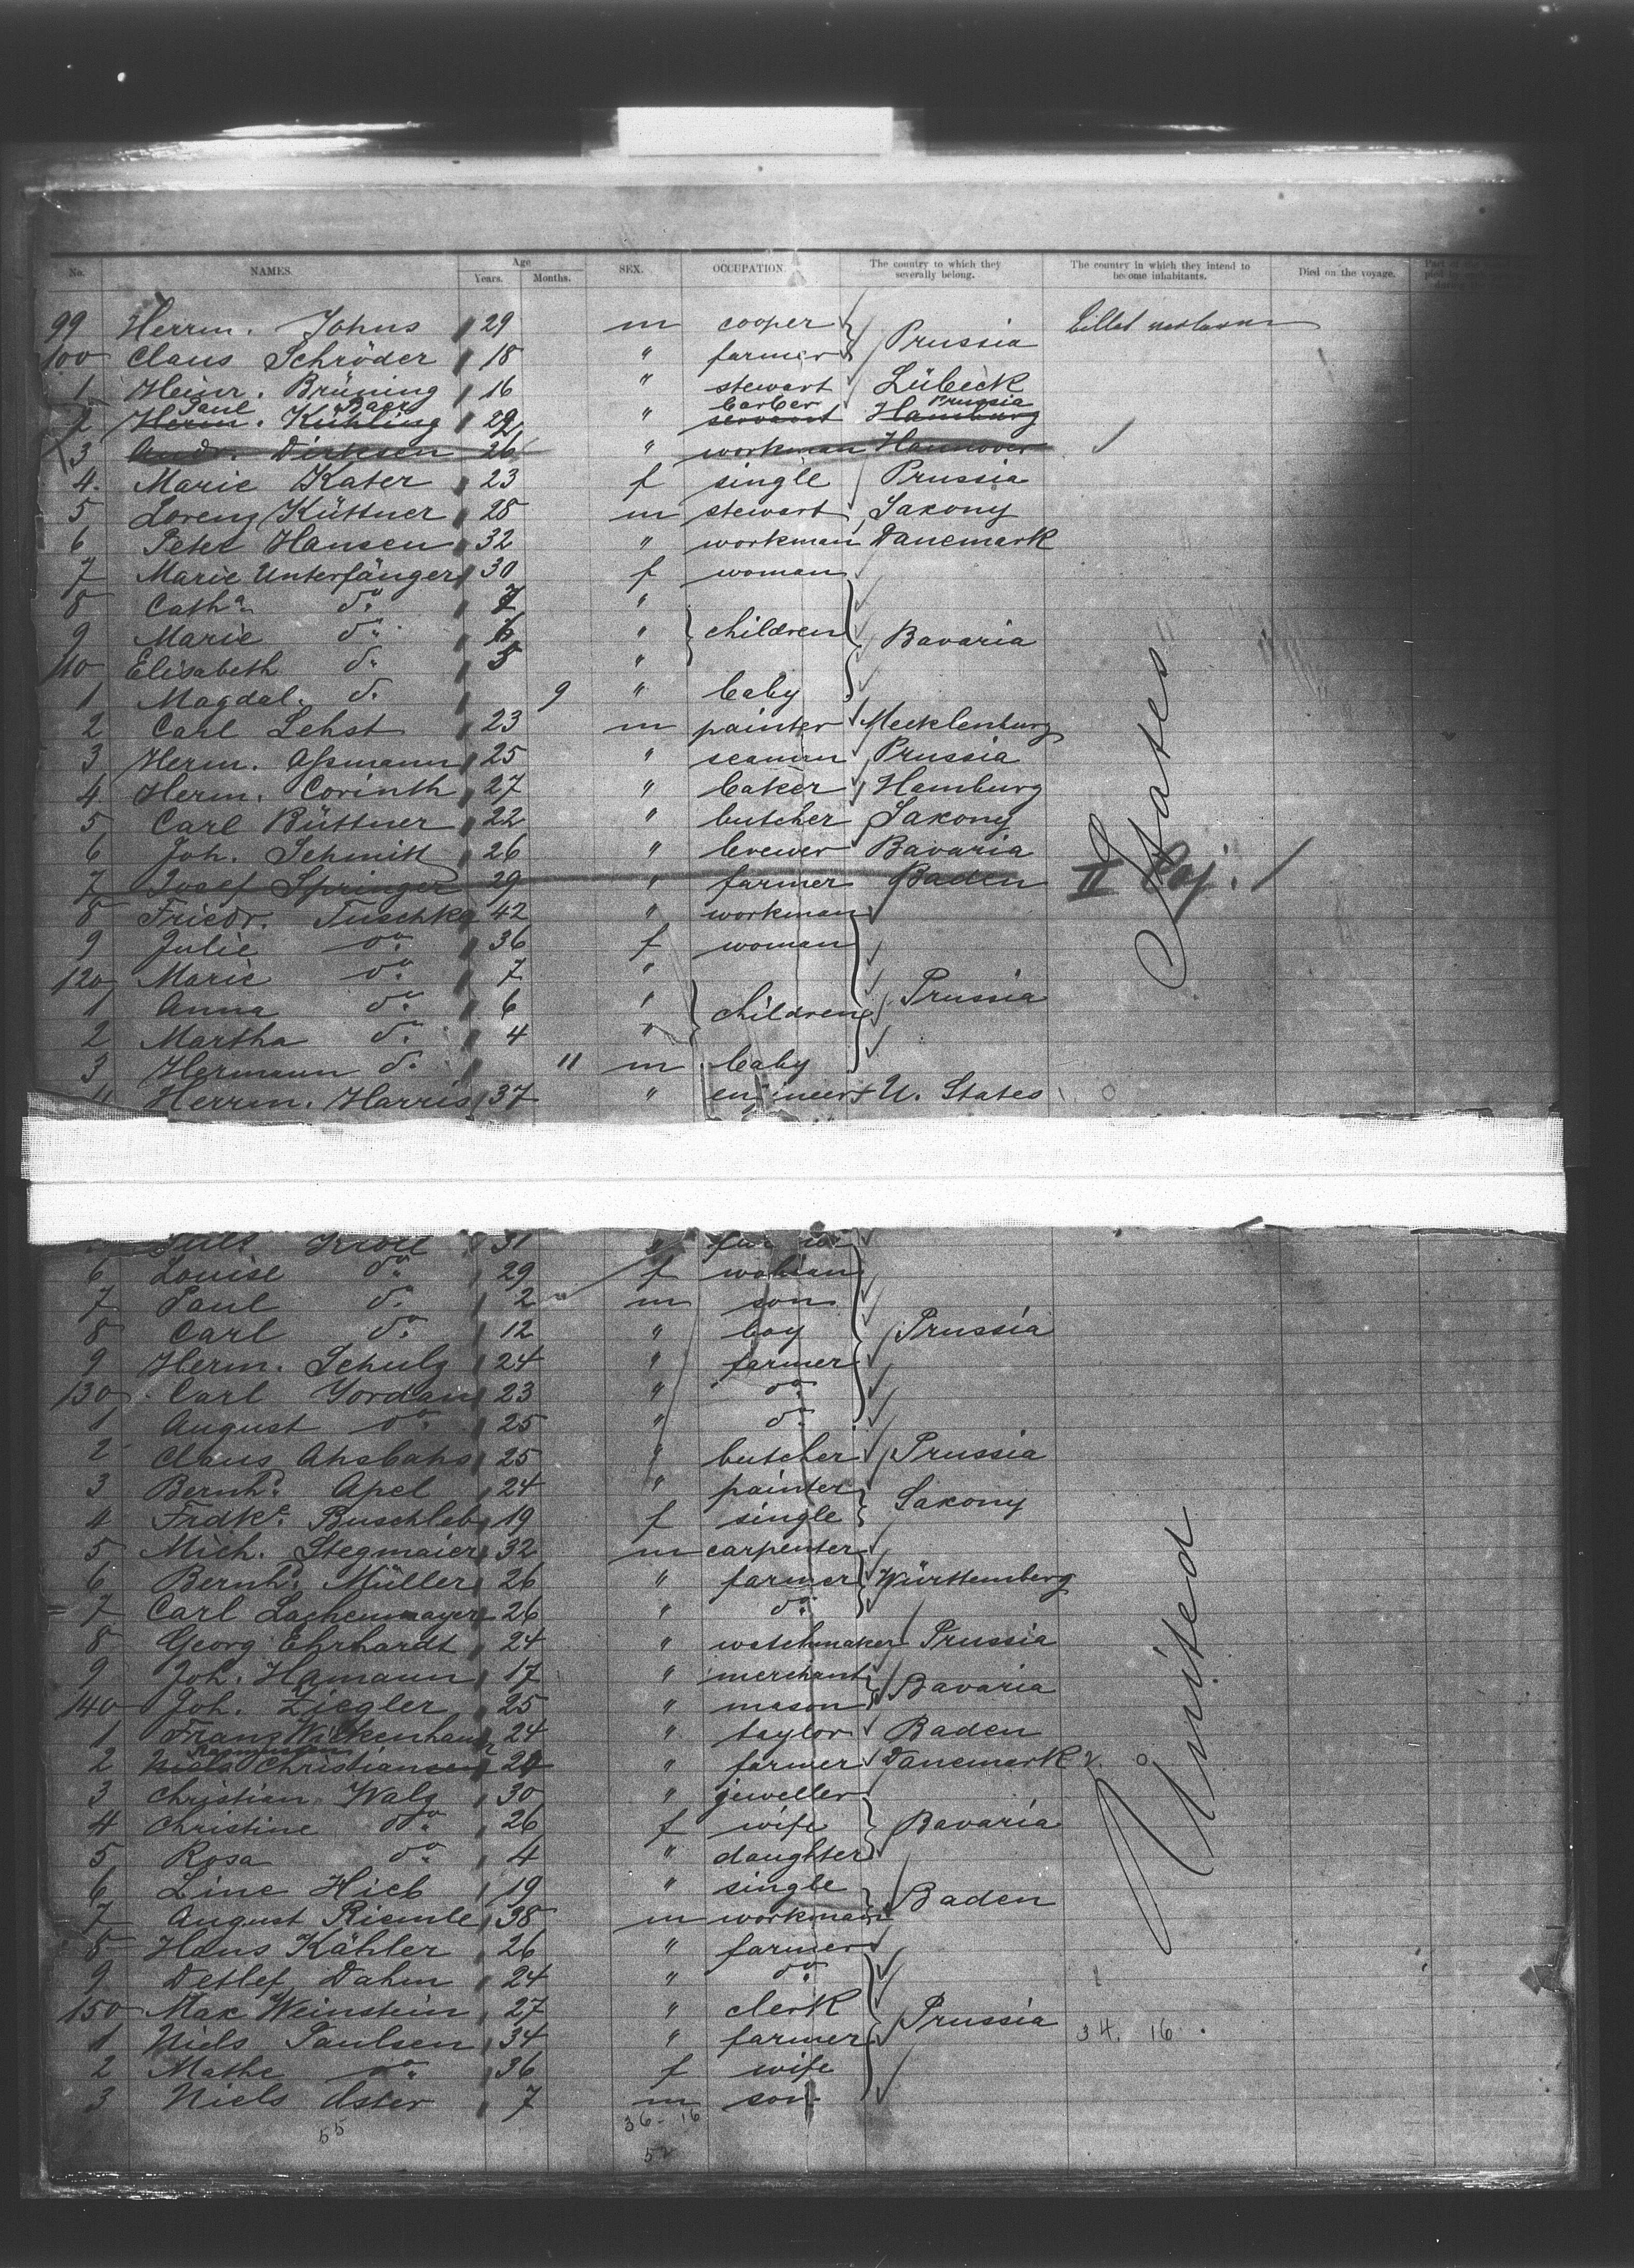 No. NAMES. Age Years. Months. SEX. OCCUPATION. The country to which they severally belong. The country in which they intend to become inhabitants. Died on the voyage.
99 Herrm. Johns 29 m cooper
Prussia
100 Claus Schröder 18 " farmer
1 Heinr. Brüning 16 " stewart Lübeck
Paul Baer barber Prussia
2 Herm. Kühling 22 " servant Hamburg
3 Andr. Dirksen 26 " workman Hannover
4. Marie Kater 23 f single Prussia
5 Lorenz Küttner 28 m stewart Saxony
6 Peter Hansen 32 " workman Danemark
7 Marie Unterfänger 30 f woman
8 Catha. do. 7 "
9 Marie do. 6 " children Bavaria
110 Elisabeth do. 5 "
1 Magdal. do. 9 " baby
2 Carl Lehst 23 m painter Mecklenburg
3 Herm. Aßmann 25 " seaman Prussia
4 Herm. Corinth 27 " baker Hamburg
5 Carl Büttner 22 " butcher Saxony
6 Joh. Schmitt 26 " brewer Bavaria
7 Josef Springer 29 " farmer Baden II Caj.
8 Friedr. Tuschka 42 " workman
9 Julie do. 36 f woman
120 Marie do. 7 "
1 Anna do. 6 " children Prussia
2 Martha do. 4 "
3 Hermann do. 11 m baby
Herrm. Harris 37 " engineer U. States
States
31
6 Louise do. 29 f woman
7 Paul do. 2 m son
8 Carl do. 12 " boy Prussia
9 Herm. Schulz 24 " farmer
130 Carl Jordan 23 " do.
1 August do. 25 " do.
2 Claus Ahsbahs 25 " butcher Prussia
3 Bernhd. Apel 24 " painter
Saxony
4 Frdke. Buschleb 19 f single
5 Mich. Stegmaier 32 m carpenter
6 Bernhd. Müller 26 " farmer Württemberg
7 Carl Lachenmayer 26 " do.
8 Georg Ehrhardt 24 " watchmaker Prussia
9 Joh. Hamann 17 " merchant
Bavaria
140 Joh. Ziegler 25 " mason
1 Franz Wilkenhauser 24 " taylor Baden
2 Niels Christiansen 24 " farmer Danemark
3 Christian Walz 30 " jeweller
4 Christine do. 26 f wife Bavaria
5 Rosa do. 4 " daughter
6 Line Hieb 19 " single
Baden
7 August Riemle 38 m workman
8 Hans Kähler 26 " farmer
9 Detlef Dahm 24 " do.
150 Max Weinstein 27 " clerk
Prussia
1 Niels Paulsen 34 " farmer 34. 16.
2 Mathe do. 36 f wife
3 Niels Oster 7 m son
United
55 36-16
52